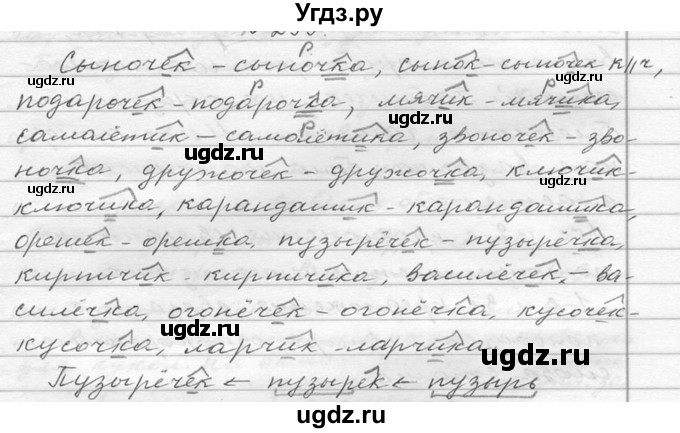 Угдз.ру
№ 235.
Сыночек - сыночка, сынок-сыночек к//ч,
подарочек - подарочка, мячик - мячика,
самолётик - самолётика, звоночек - зво-
ночка, дружочек - дружочка, ключик-
ключика, карандашик - карандашика,
орешек - орешка, пузырёчек - пузырёчка,
кирпичик кирпичика, василёчек, - ва-
силёчка, огонёчек - огонёчка, кусочек-
кусочка, ларчик - ларчика.
Пузырёчек ← пузырёк ← пузырь
ugdz.ru